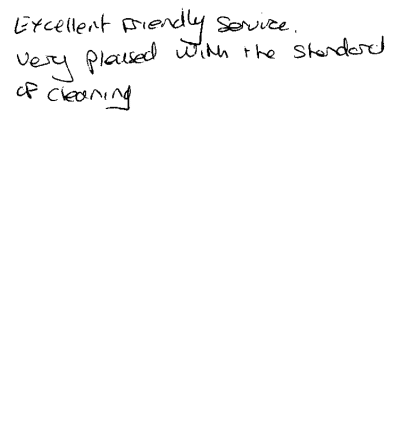 Excellent Friendly Service.
Very pleased with the standard
of cleaning